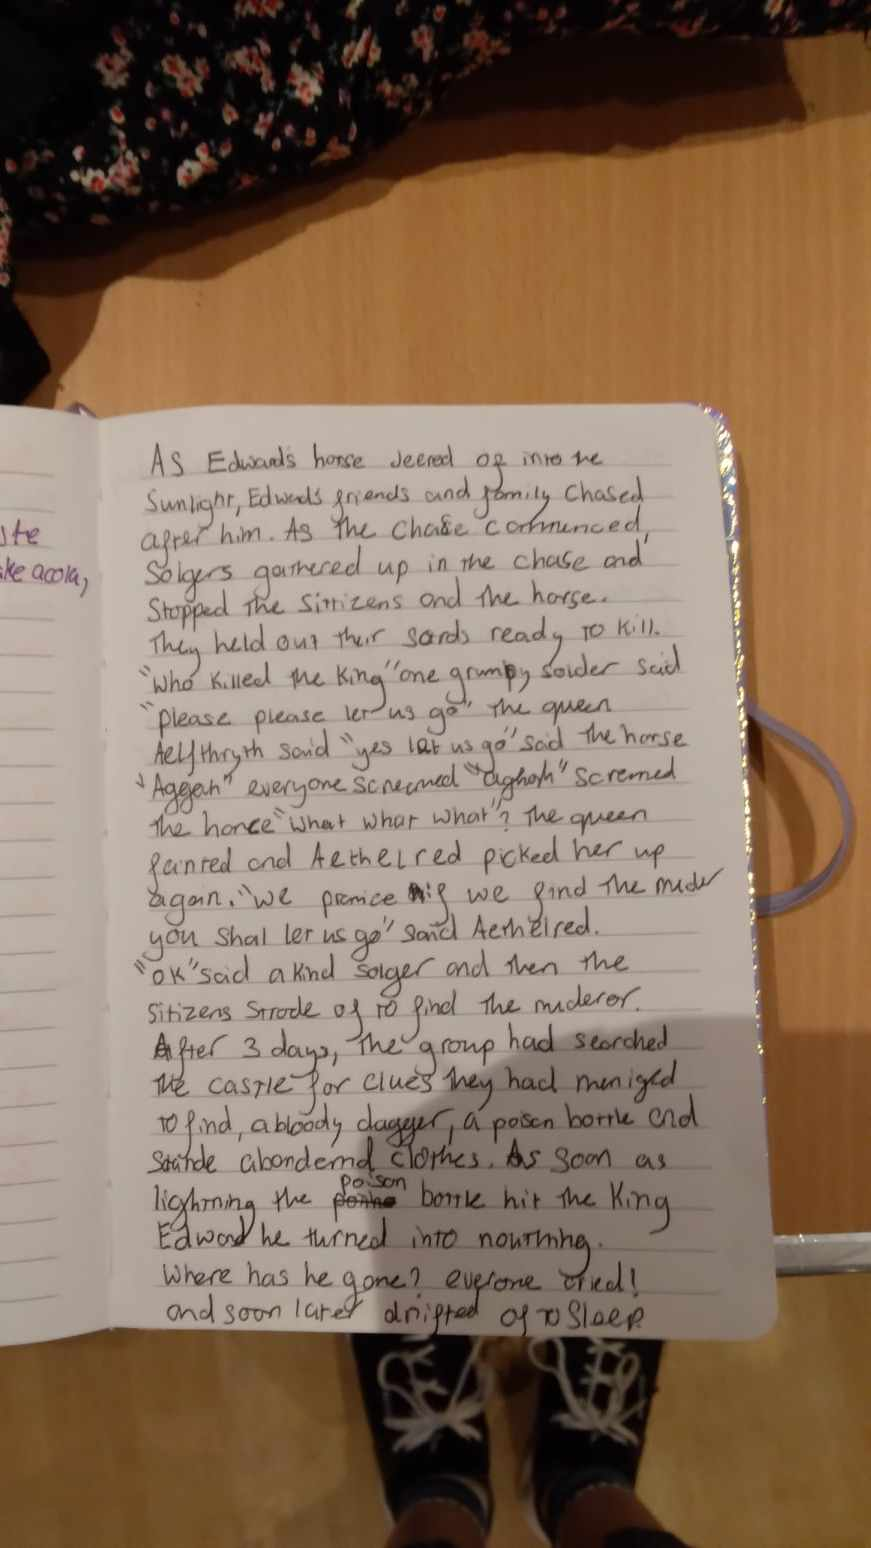 ste
ke acola,
As Edwards horse veered of into the
Sunlight, Edwards friends and family chased
after him. As the chase commenced,
Solgers gathered up in the chase and
Stopped the sittizens and the horse.
They held out their sords ready to kill.
"Who killed the king" one grumpy solder said
"please please let us go" the queen
Aelfthryth said "yes let us go" said the horse
"Aggah" everyone screemed "aghah" scremed
the horce "what what what"? The queen
fainted and Aethelred picked her up
again. "We promice if we find the muder
you shal let us go" said Aethelred.
"OK" said a kind solger and then the
sitizens strode of to find the muderor.
After 3 days, the group had searched
the castle for clues they had meniged
to find, a bloody dagger, a poison bottle and
abondernd clothes. As soon as
lightning the poison bottle hit the King
Edward he turned into nourthing.
Where has he gone? everone cried!
and soon later drifted of to sleep.